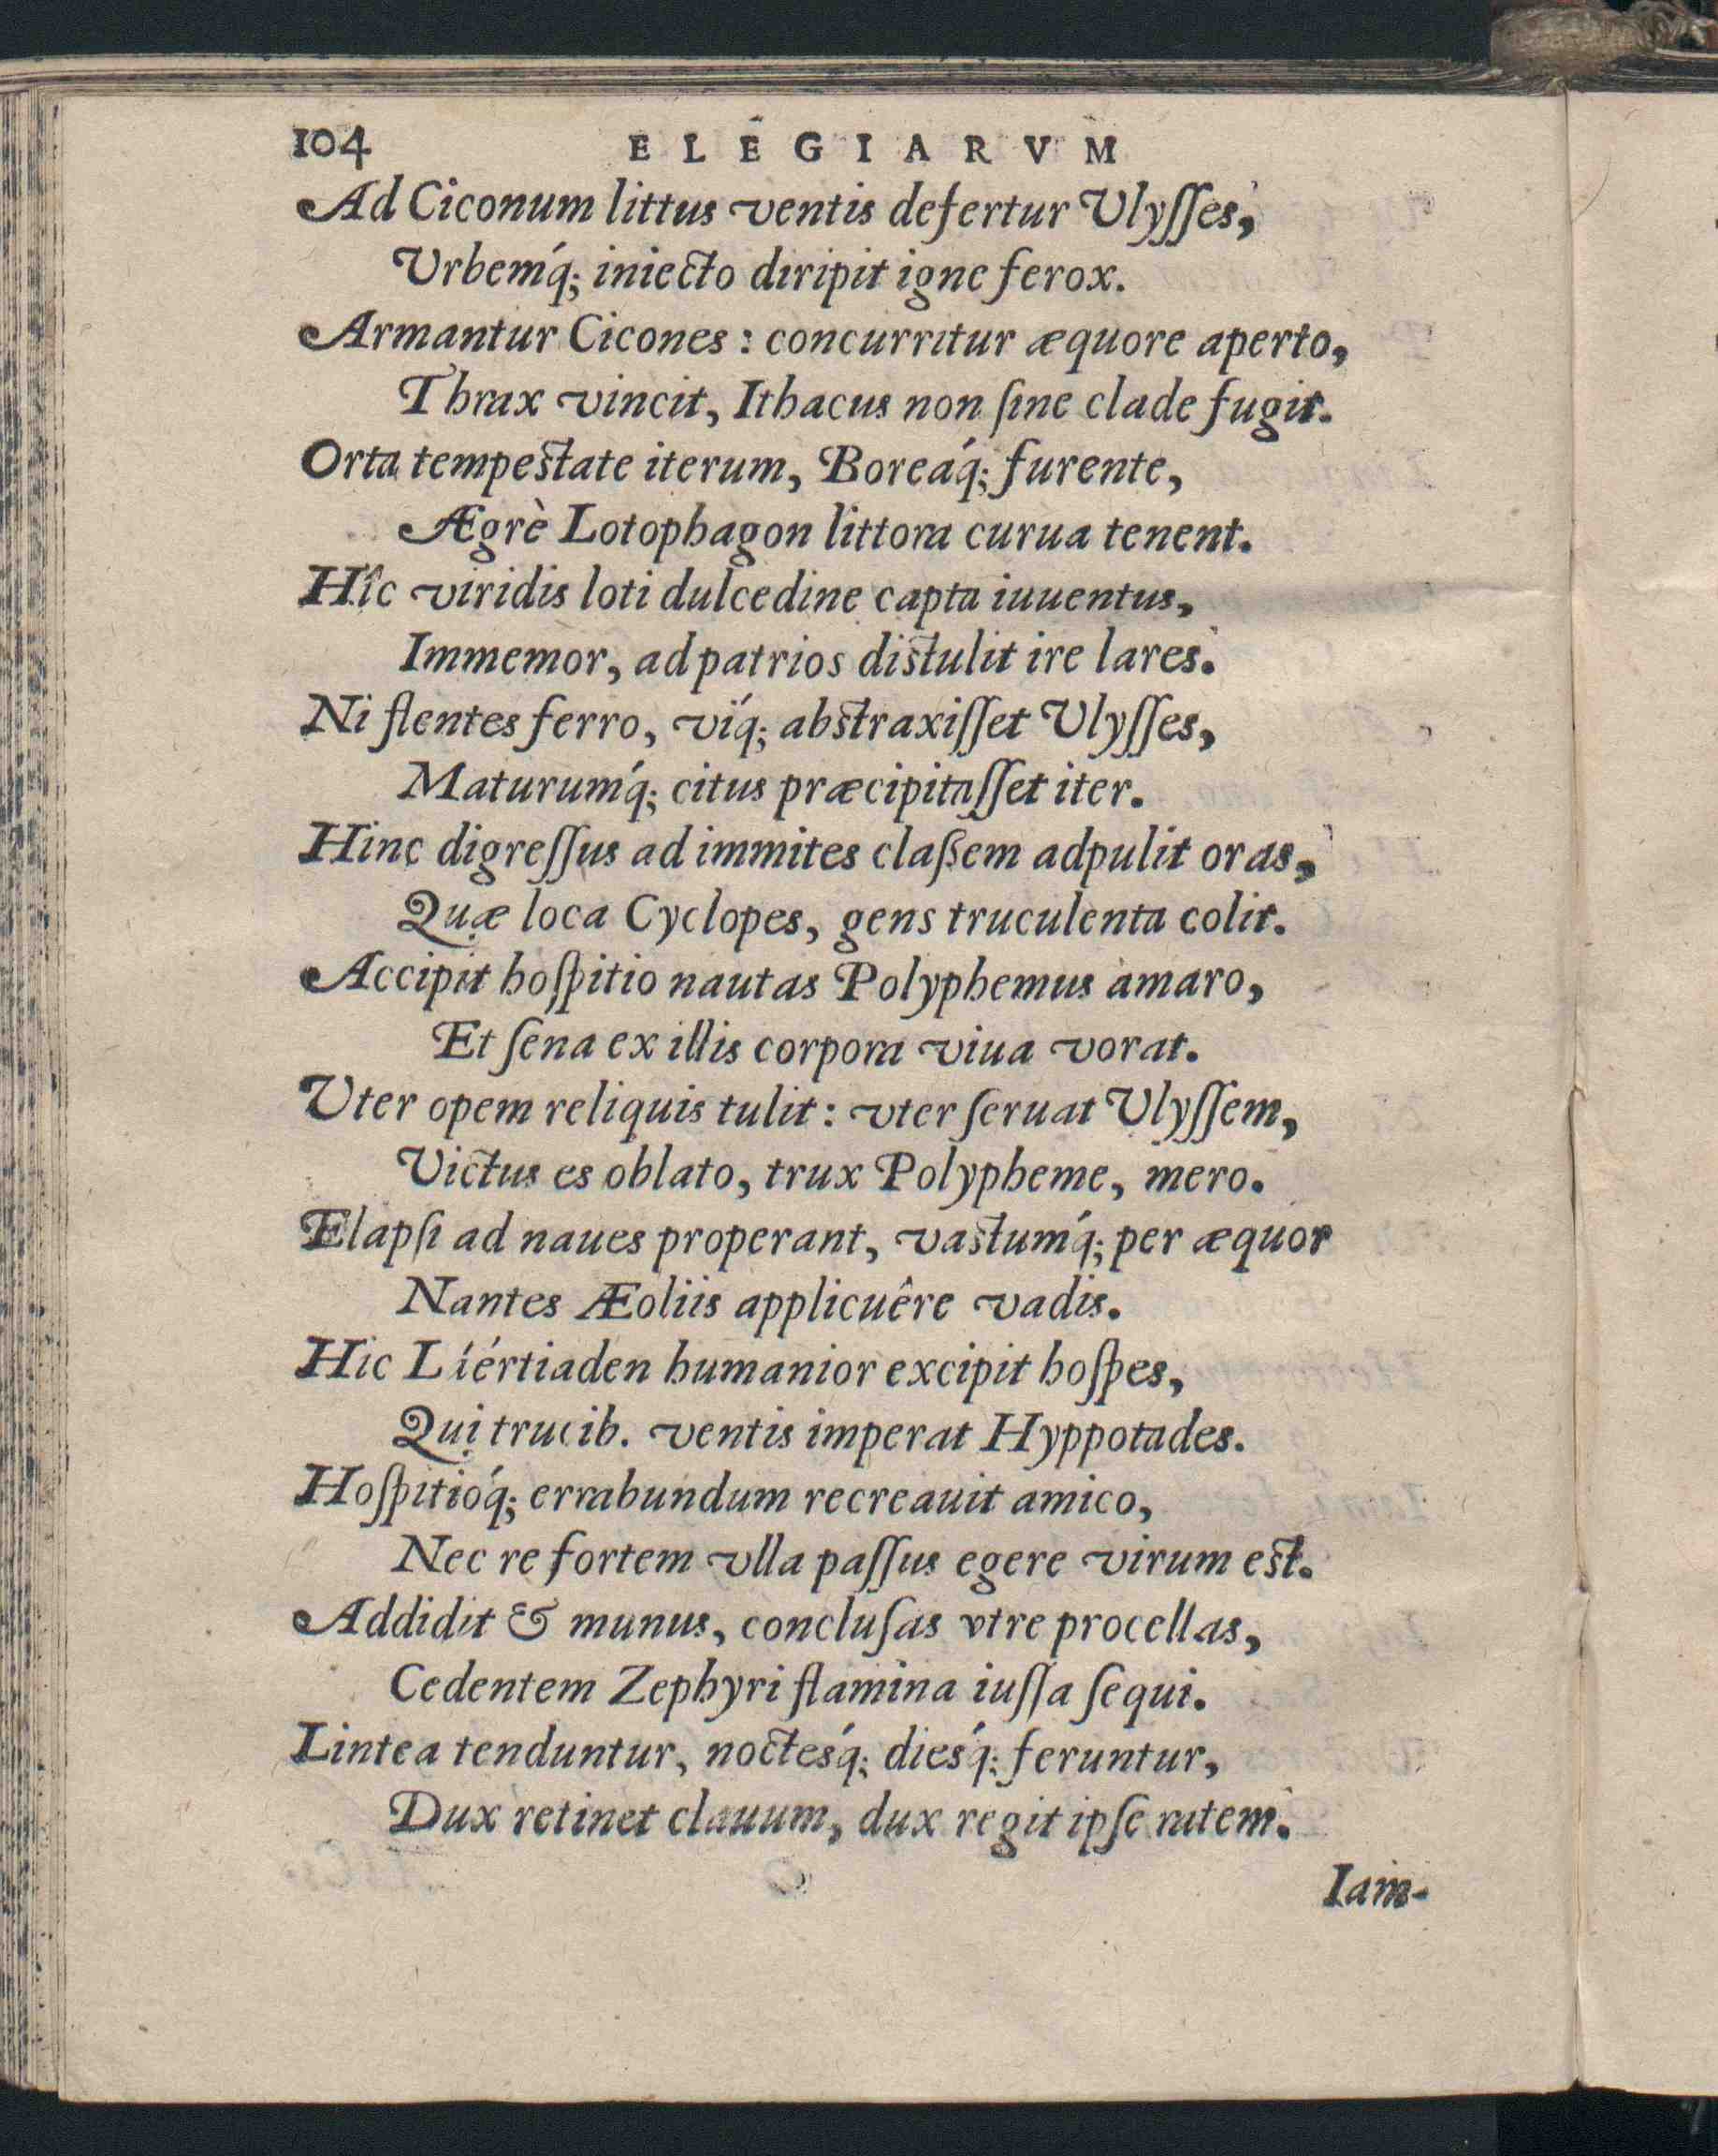 104 ELEGIARVM
Ad Ciconum littus ventis defertur Vlyſſes,
Vrbemq́; iniecto diripit igne ferox.
Armantur Cicones : concurritur æquore aperto,
Thrax vincit, Ithacus non ſine clade fugit.
Orta tempeſtate iterum, Boreáq; furente,
Ægrè Lotophagon littora curua tenent.
Hîc viridis loti dulcedine capta iuuentus,
Immemor, ad patrios diſtulit ire lares.
Ni flentes ferro, víq; abſtraxiſſet Vlyſſes,
Maturumq́; citus præcipitaſſet iter.
Hinc digreſſus ad immites claßem adpulit oras,
Quæ loca Cyclopes, gens truculenta colit.
Accipit hoſpitio nautas Polyphemus amaro,
Et ſena ex illis corpora viua vorat.
Vter opem reliquis tulit : vter ſeruat Vlyſſem,
Victus es oblato, trux Polypheme, mero.
Elapſi ad naues properant, vaſtumq́; per æquor
Nantes Æoliis applicuêre vadis.
Hic Líértiaden humanior excipit hoſpes,
Qui trucib. ventis imperat Hyppotades.
Hoſpitióq; errabundum recreauit amico,
Nec re fortem vlla paſſus egere virum eſt.
Addidit & munus, concluſas vtre procellas,
Cedentem Zephyri flamina iuſſa ſequi.
Lintea tenduntur, noctesq́; diesq́; feruntur,
Dux retinet clauum, dux regit ipſe ratem.
Iam-